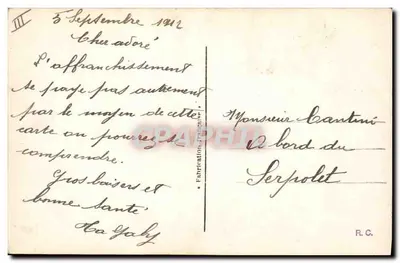 III
5 Septembre 1912
Cher adoré
L'affranchissement
se paye pas autrement
par le moyen de cette
carte on pourra se
comprendre.
Gros baisers et
bonne santé
Ta Gaby
Fabrication Française
Monsieur Cantuni
A bord du
Serpolet
R.C.